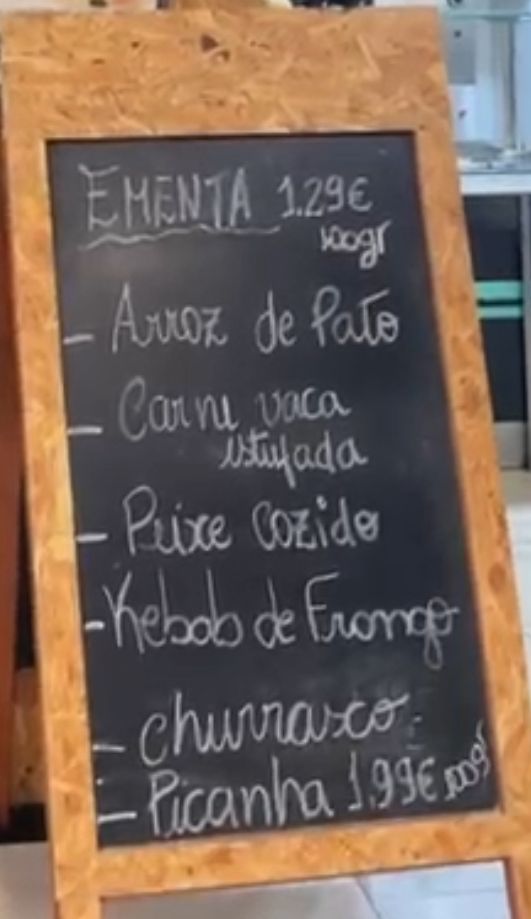 EMENTA 1.29€
100gr
- Arroz de Pato
- Carne vaca
estufada
- Peixe Cozido
- Kebab de Frango
- churrasco
- Picanha 1,99€ 100gr